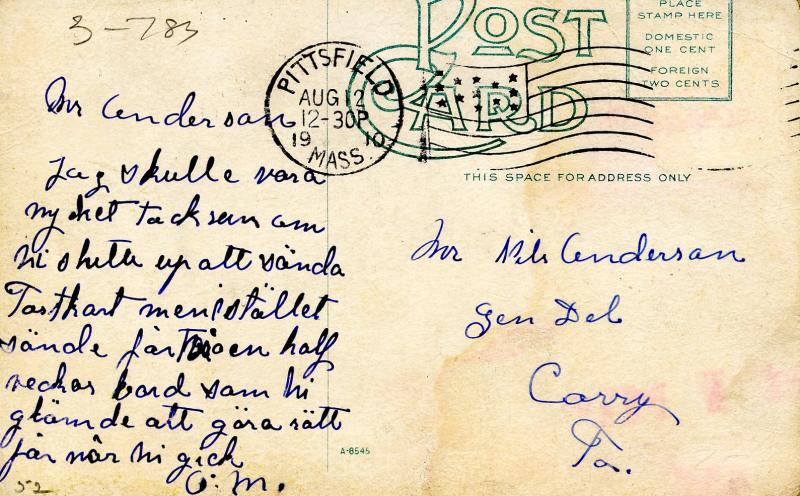 3-783
POST
CARD
PLACE
STAMP HERE
DOMESTIC
ONE CENT
FOREIGN
TWO CENTS
PITTSFIELD
AUG 12
12-30P
1910
MASS.
THIS SPACE FOR ADDRESS ONLY
Mr Anderson
Jag skulle vara
mycket tacksam om
ni skulle upatt sända
Postkort men istället
sände för två en half
veckas bord som ni
glömde att göra rätt
för när ni gick
O. M.
Mr Nils Anderson
Gen Del
Corry
Pa.
A-8545
52